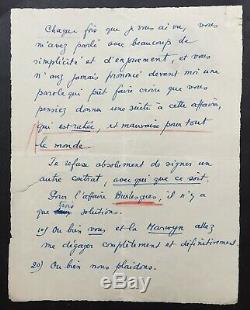 Chaque fois que je vous ai vu, vous
m'avez parlé avec beaucoup de
simplicité et d'enjouement, et vous
n'avez jamais prononcé devant moi une
parole qui pût faire croire que vous
pensiez donner une suite à cette affaire,
qui est ratée, et mauvaise pour tout
le monde.
Je refuse absolument de signer un
autre contrat, avec qui que ce soit.
Pour l'affaire Burlesques, il n'y a
que trois solutions.
1o) Ou bien vous et la allez
me dégager complètement et définitivement.
2o) Ou bien nous plaidons.